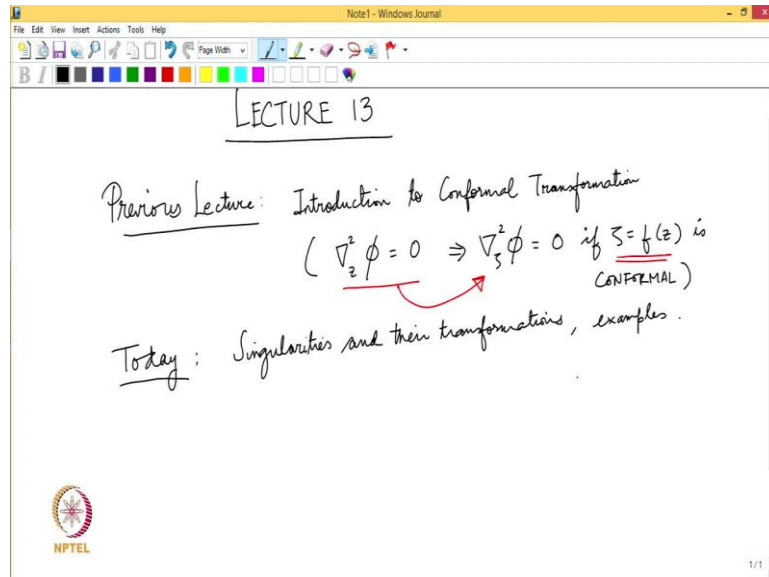 Note1 - Windows Journal
File Edit View Insert Actions Tools Help
Page Width
B I
LECTURE 13
Previous Lecture: Introduction to Conformal Transformation
( ∇²_z ϕ = 0 ⇒ ∇²_ζ ϕ = 0 if ζ = f(z) is
CONFORMAL )
Today: Singularities and their transformations, examples.
NPTEL
1/1